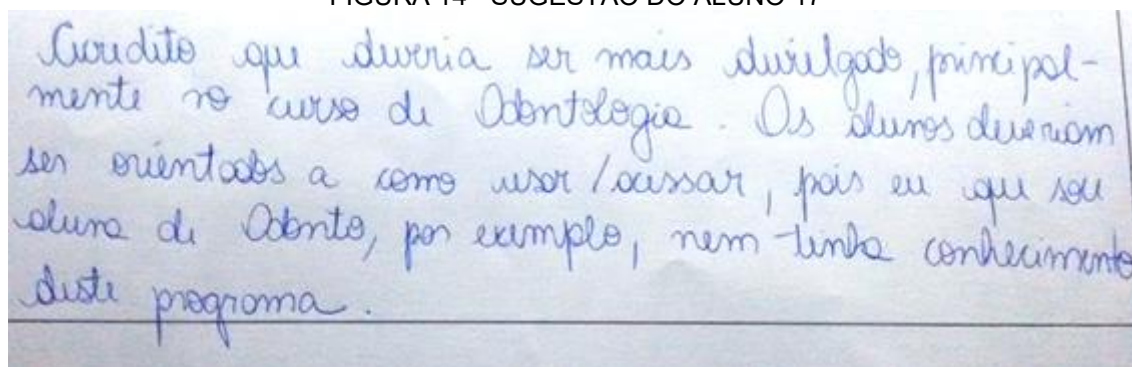 FIGURA 14 - SUGESTÃO DO ALUNO 17
Acredito que deveria ser mais divulgado, principal-
mente no curso de Odontologia. Os alunos deveriam
ser orientados a como usar/acessar, pois eu que sou
aluna de Odonto, por exemplo, nem tinha conhecimento
deste programa.